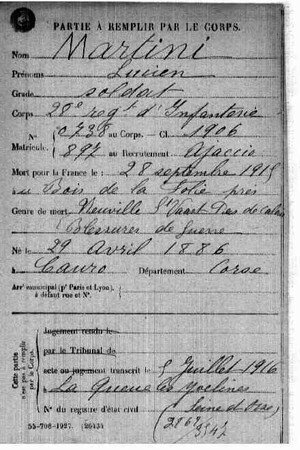 PARTIE À REMPLIR PAR LE CORPS.
Nom Martini
Prénoms Lucien
Grade soldat
Corps 20e regt d'Infanterie
N° c738 au Corps. — Cl. 1906
Matricule. 897 au Recrutement Ajaccio
Mort pour la France le 28 septembre 1915
au Bois de la Folie près
Genre de mort Neuville St Vaast Pas de Calais
Blessures de guerre
Né le 29 Avril 1886
à Cauro Département Corse
Arrt municipal (pr Paris et Lyon),
à défaut rue et N°.
Cette partie
n'est pas à remplir
par le Corps.
Jugement rendu le
par le Tribunal de
acte ou jugement transcrit le 5 Juillet 1916
à La Queue les Yvelines
Seine et Oise
N° du registre d'état civil
55-708-1927. [26434]